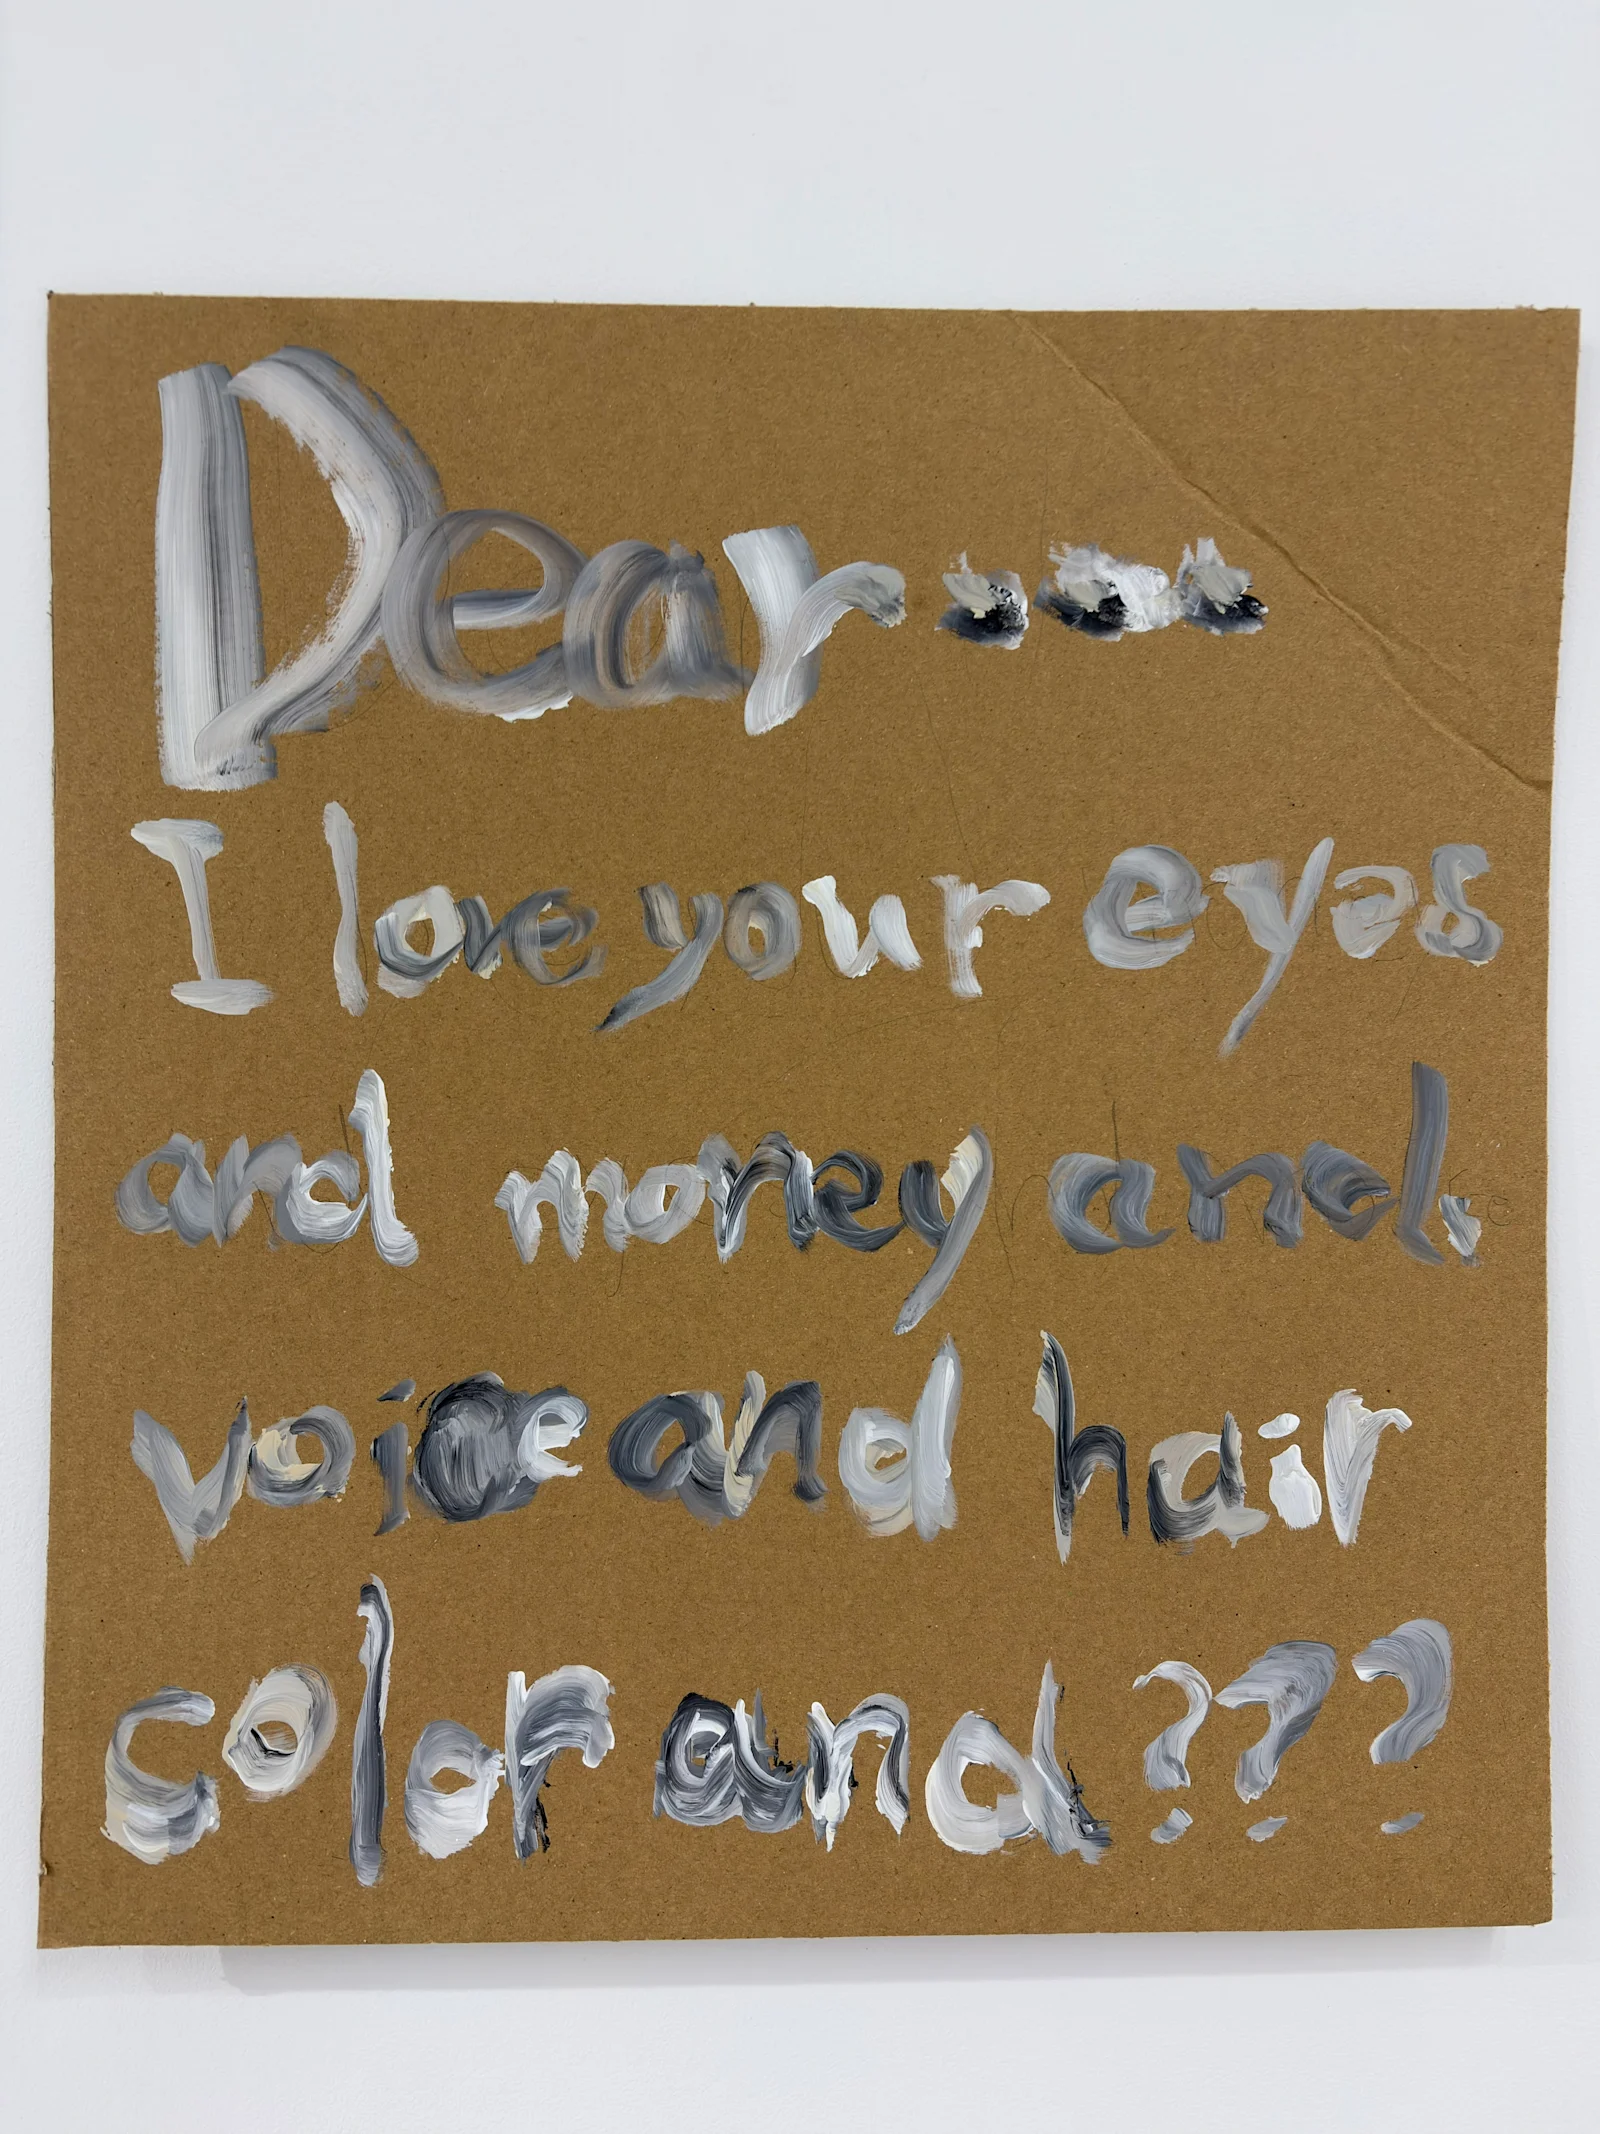 Dear ...
I love your eyes
and money and.
voice and hair
color and ???